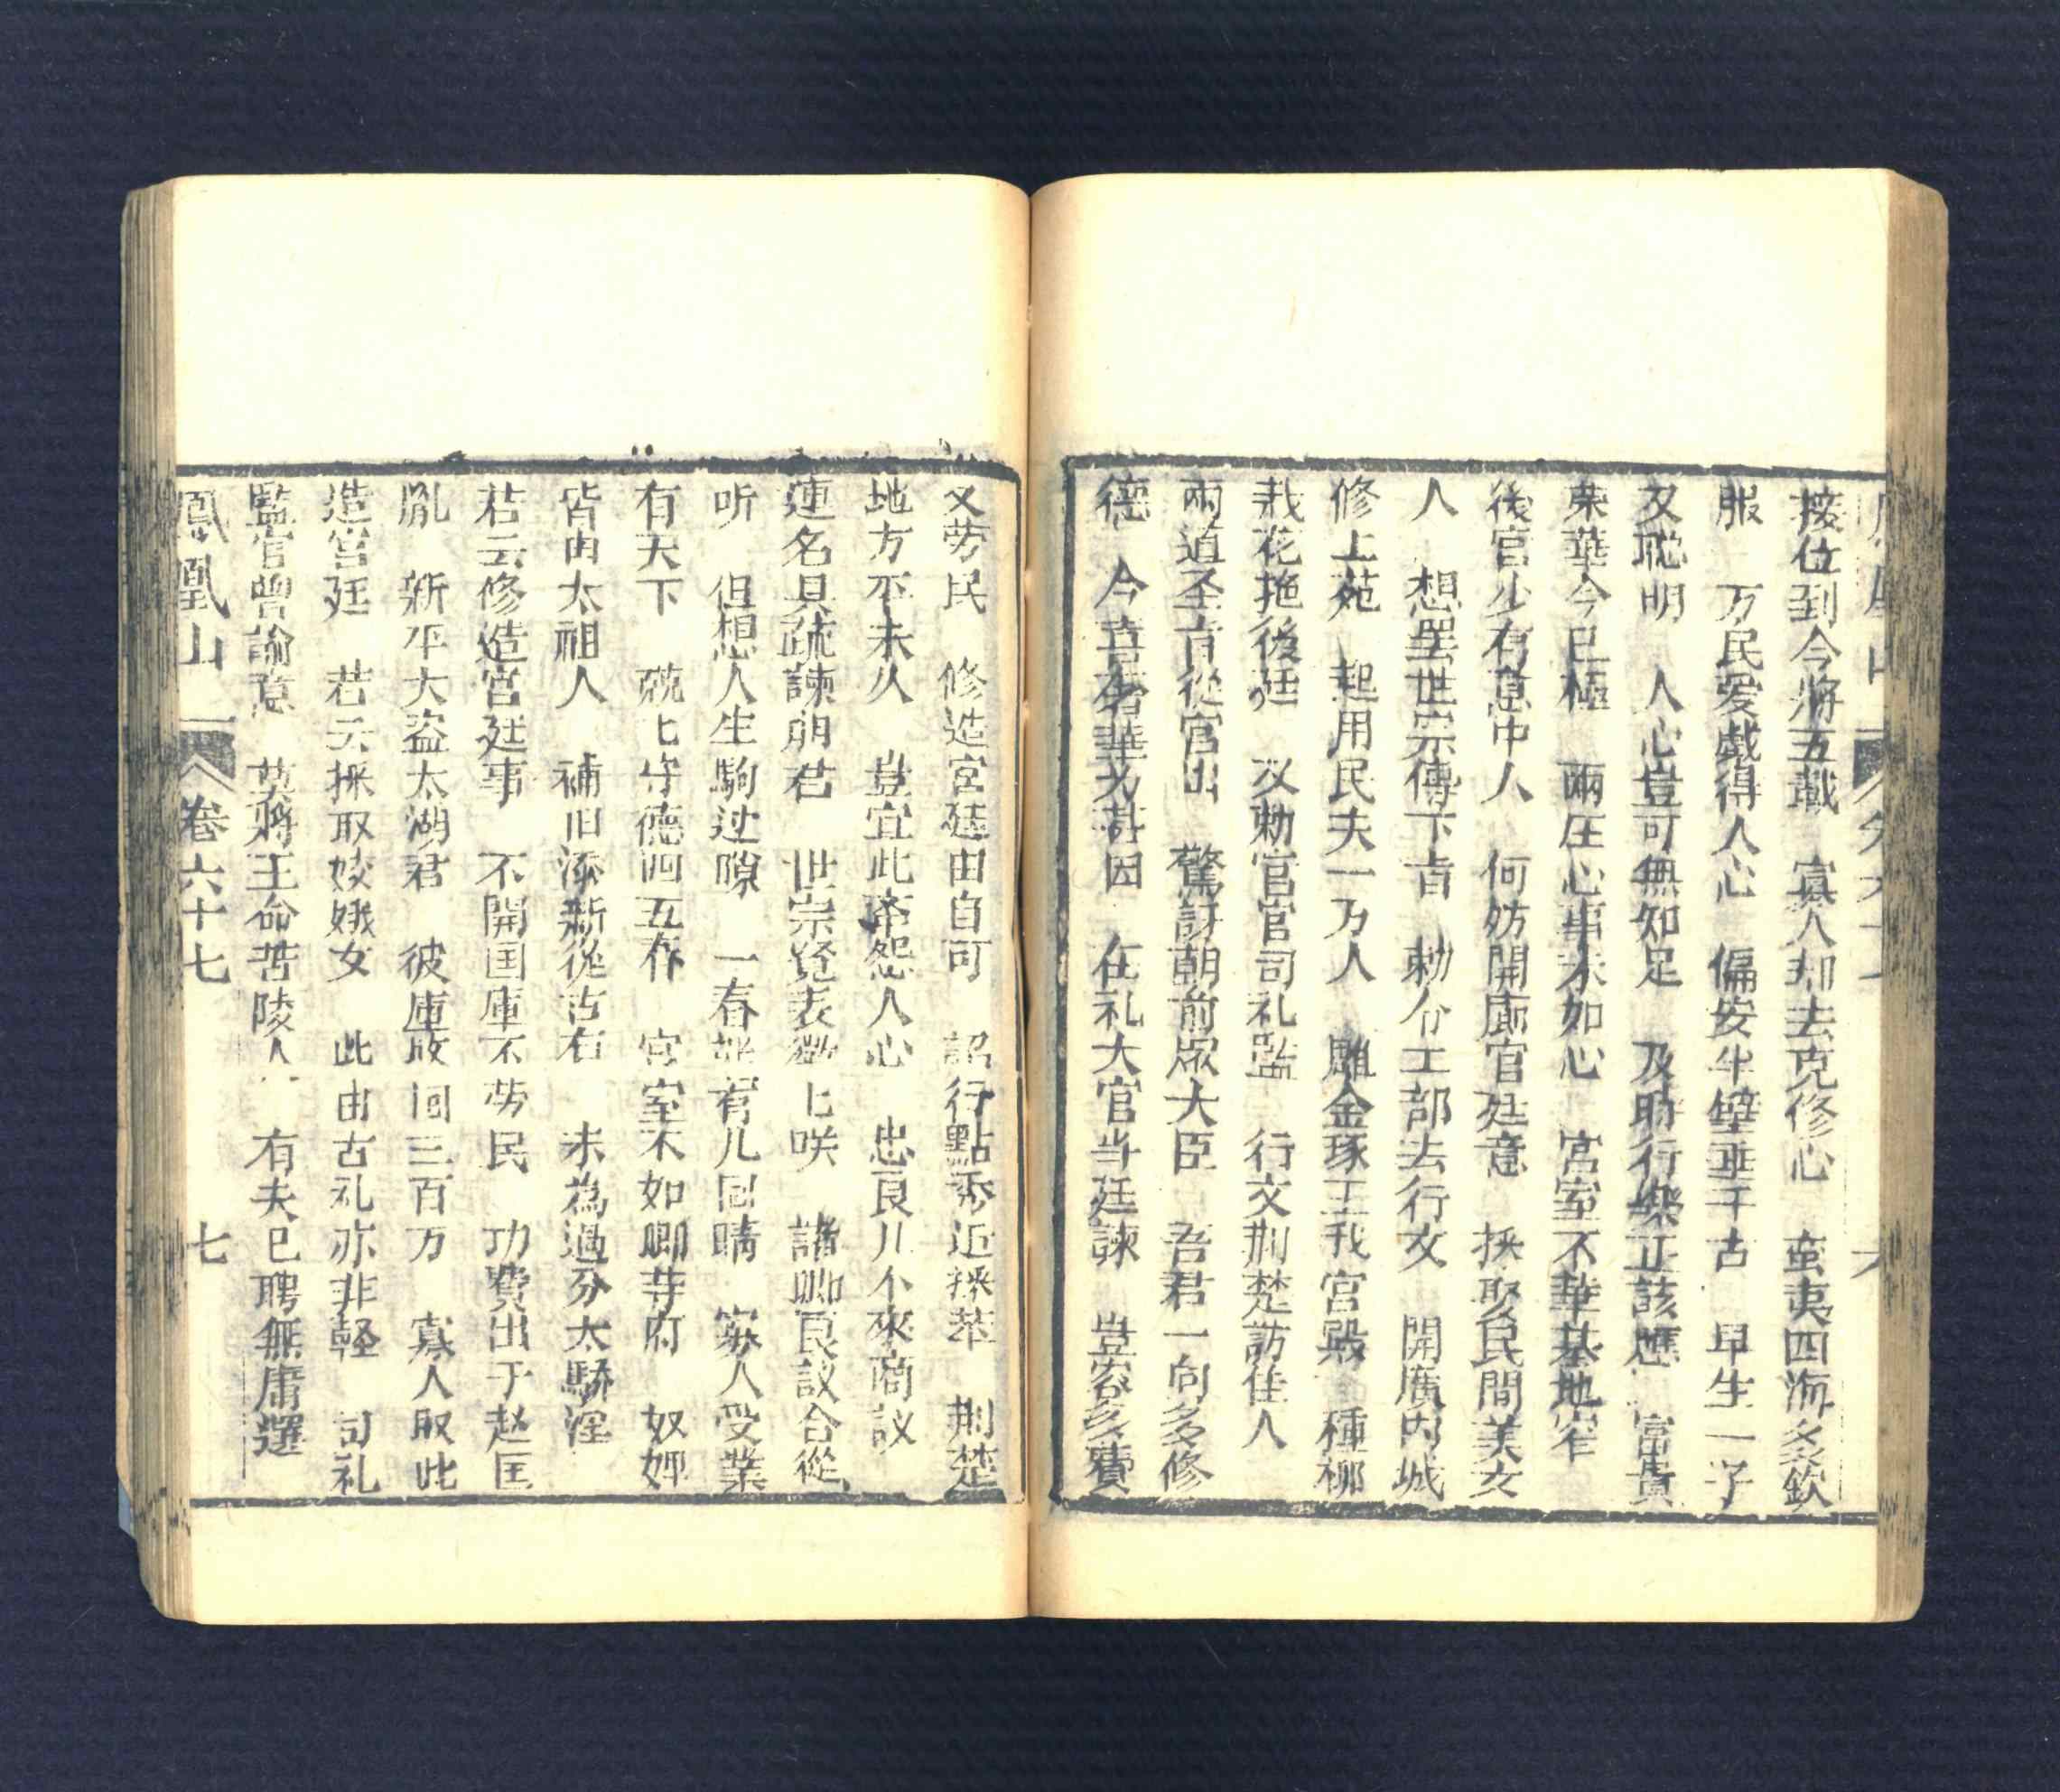 接位到今將五載　寡人却去克修心　蛮夷四海多欽
服　万民爱戴得人心　偏安半壁垂千古　早生一子
又聪明　人心豈可無知足　及時行樂正該應　富貴
荣華今已極　兩庄心事未如心　宮室不華基地窄
後宫少有意中人　何妨開廓宫廷意　挨娶民間美女
人　想罢世宗傳下旨　勅令工部去行文　開廣内城
修上苑　起用民夫一万人　雕金琢玉我宮殿　種柳
栽花拖後廷　又勅宫官司礼監　行文荆楚訪佳人
兩道圣旨從宫出　驚訝朝前众大臣　吾君一向多修
德　今喜奢華为甚因　在礼大官当廷諫　豈容多費
又劳民　修造宮廷由自可　詔行點秀近採苹　荆楚
地方平未久　豈宜此際怨人心　忠良几个來商议
連名具疏諫朋君　世宗覧表微上咲　諸卿良议合從
听　但想人生駒过隙　一春能有几回晴　寡人受業
有天下　兢匕守德四五春　宫室不如卿等府　奴婢
皆由太祖人　補旧添新從古右　未為過分太驕淫
若云修造宫廷事　不開国庫不劳民　功費出于赵匡
胤　新平大盗太湖君　彼庫收回三百万　寡人取此
造宫廷　若云採取姣娥女　此由古礼亦非輕　司礼
監官曾諭意　莫將王命苦陵人　有夫已聘無庸選
鳳凰山　卷六十七　七